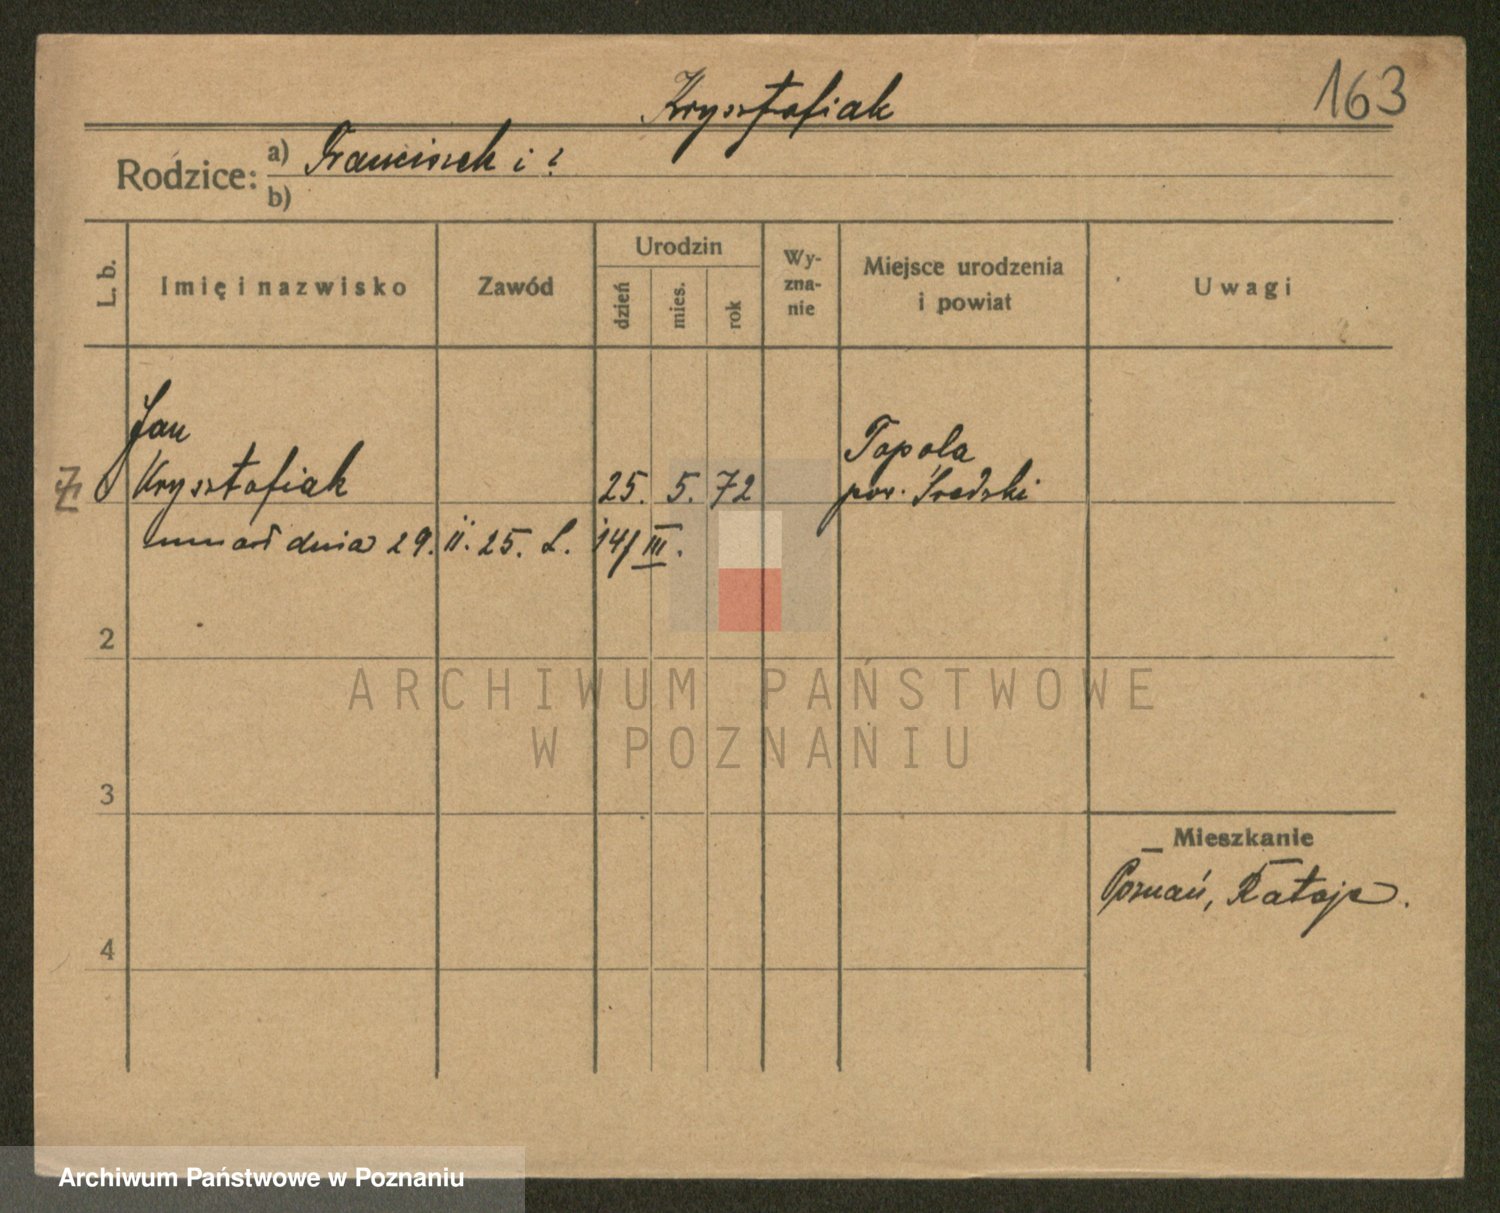 Krysztofiak
163
Rodzice: a) Franciszek i ?
b)
L. b.
Imię i nazwisko
Zawód
Urodzin
dzień
mies.
rok
Wy-
zna-
nie
Miejsce urodzenia
i powiat
Uwagi
Jan
Krysztofiak
25. 5. 72
Topola
pow. Średzki
umarł dnia 29. 11. 25. L. 141/III.
2
3
4
Mieszkanie
Poznań, Rataje.
ARCHIWUM PAŃSTWOWE
W POZNANIU
Archiwum Państwowe w Poznaniu